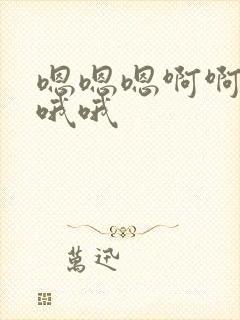 嗯嗯嗯啊啊
哦哦
萬迅